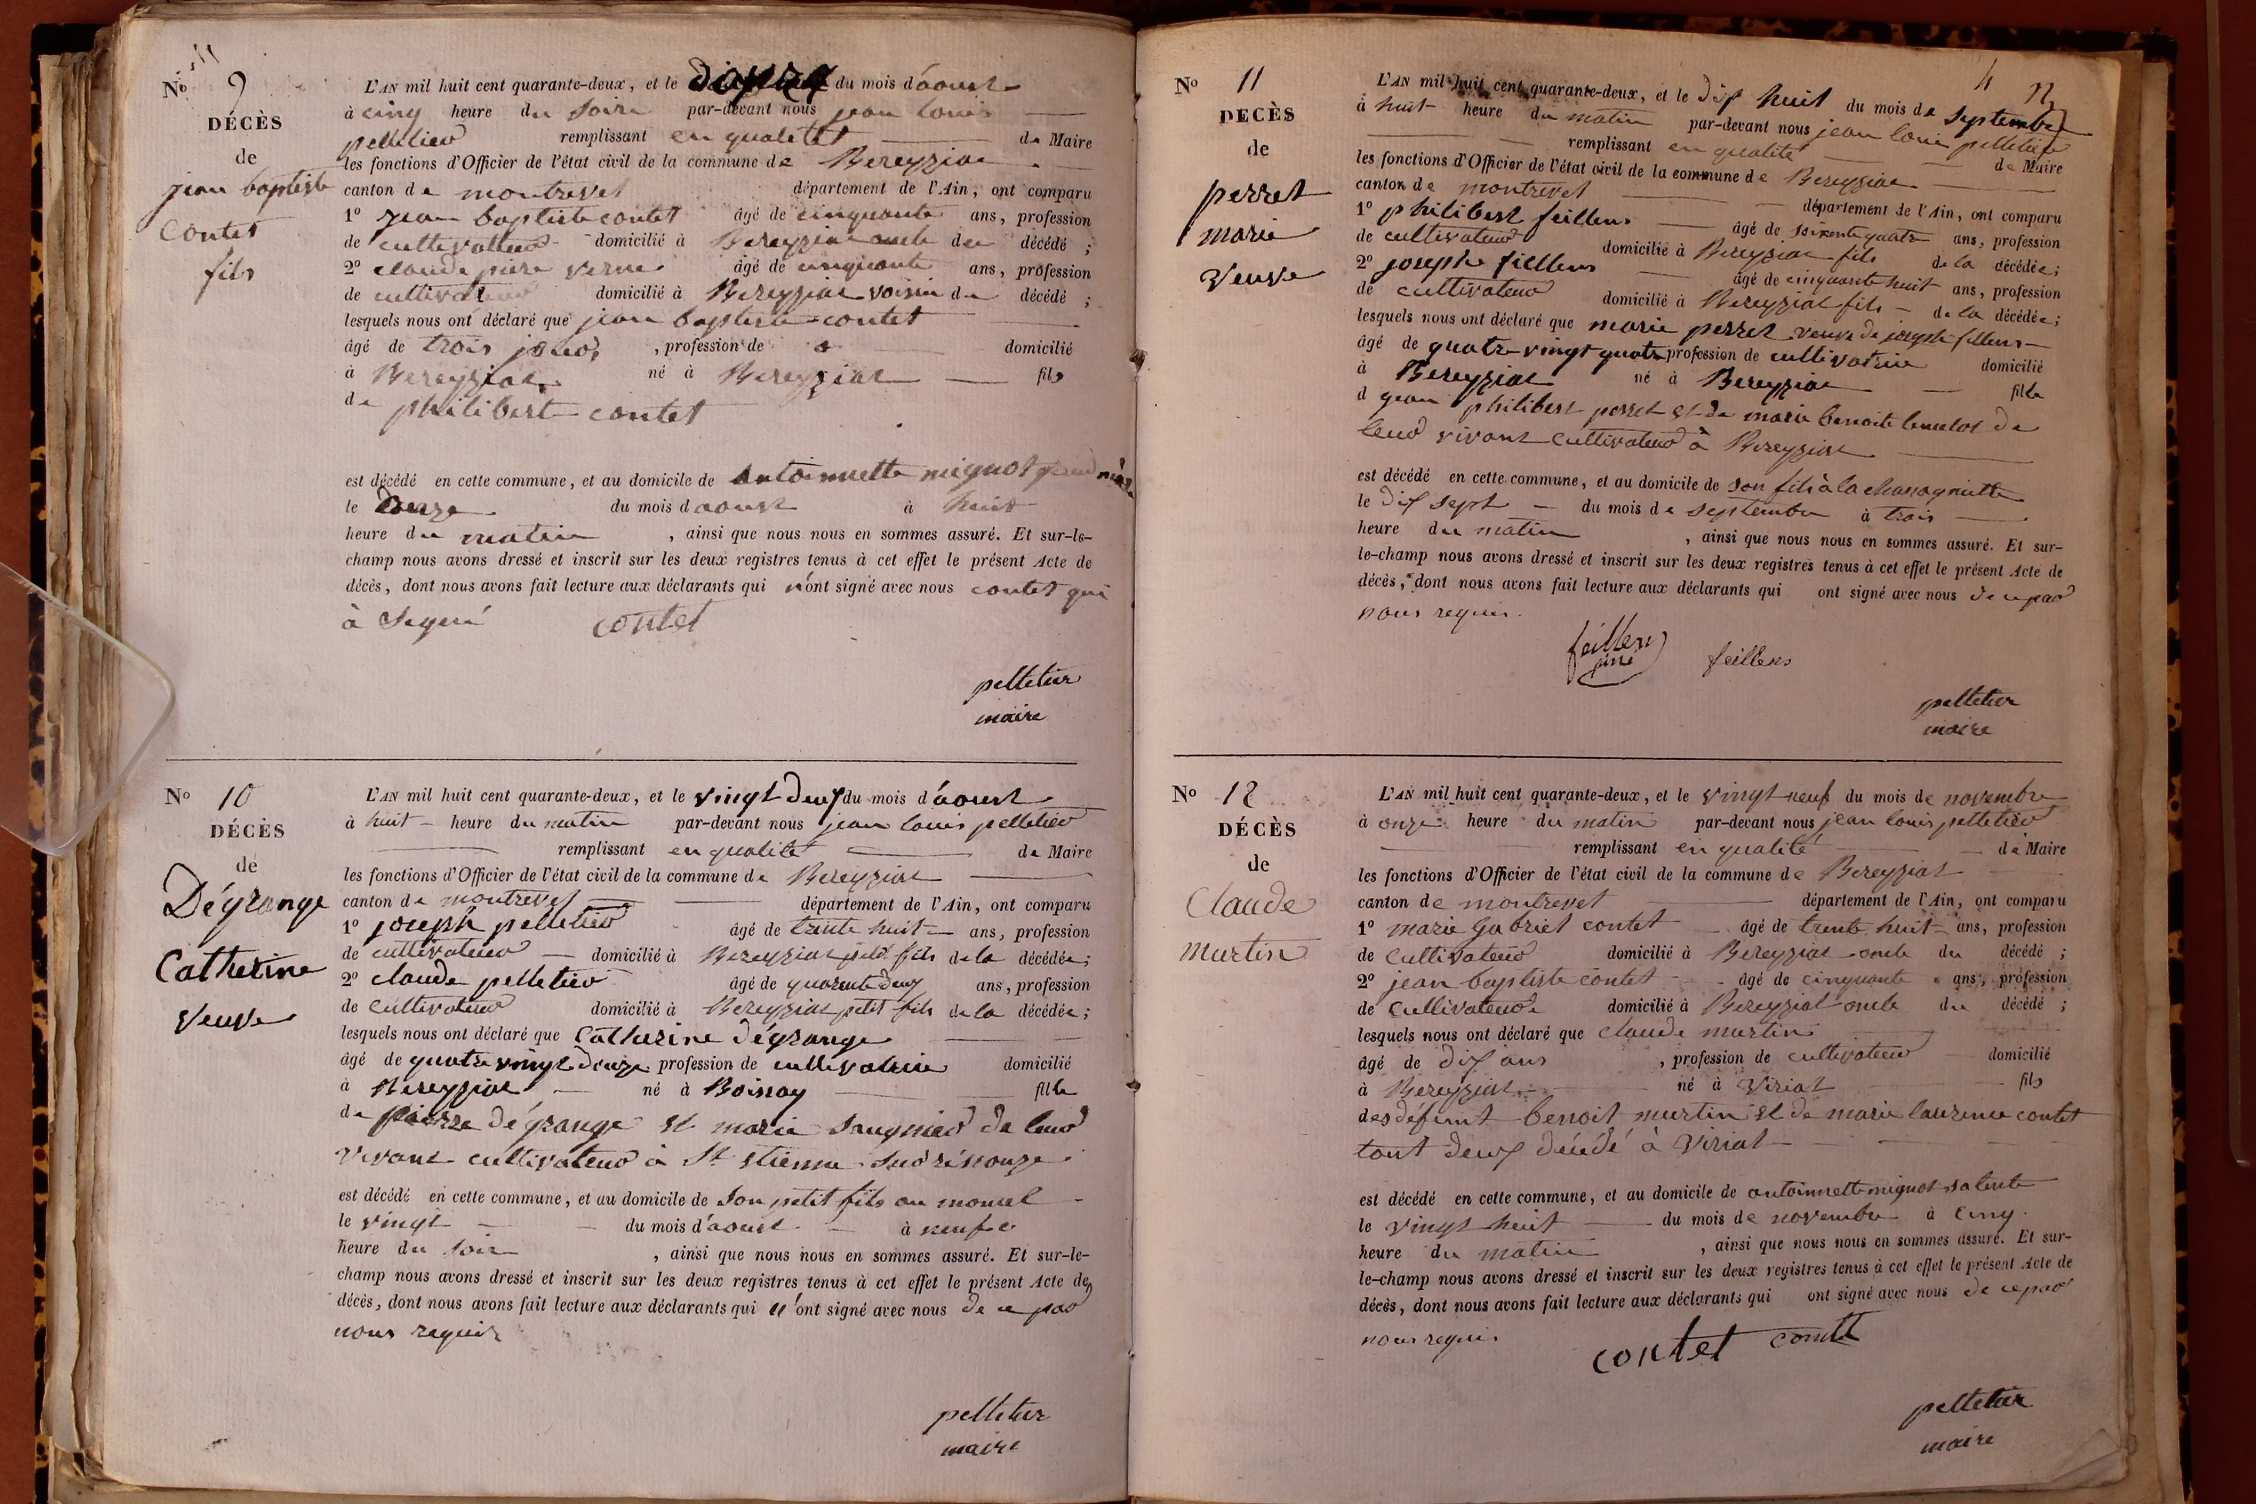 No 9
DÉCÈS
de
jean baptiste
Contet
fils
L'AN mil huit cent quarante-deux, et le du mois d'aoust
à cinq heure du Soire par-devant nous jean louis
pelletier remplissant en qualitét de Maire
les fonctions d'Officier de l'état civil de la commune de Bereyziat
canton de montrevel département de l'Ain, ont comparu
1o jean baptiste contet âgé de cinquante ans, profession
de cultivateur domicilié à Bereyziat oncle du décédé ;
2o claude piere verne âgé de cinquante ans, profession
de cultivateur domicilié à Bereyziat voisin du décédé ;
lesquels nous ont déclaré que jean baptiste contet
âgé de trois jours , profession de domicilié
à Bereyziat né à Bereyziat fils
de philibert contet
est décédé en cette commune, et au domicile de antoinnette mignot grand mère
le douze du mois d aoust à huit
heure du matin , ainsi que nous nous en sommes assuré. Et sur-le-
champ nous avons dressé et inscrit sur les deux registres tenus à cet effet le présent Acte de
décès, dont nous avons fait lecture aux déclarants qui n'ont signé avec nous contet qui
à Signé contet
pelletier
maire
No 10
DÉCÈS
de
Dégrange
Catherine
veuve
L'AN mil huit cent quarante-deux, et le vingt deux du mois d'aoust
à huit heure du matin par-devant nous jean louis pelletier
remplissant en qualité de Maire
les fonctions d'Officier de l'état civil de la commune de Bereyziat
canton de montrevel département de l'Ain, ont comparu
1o joseph pelletier âgé de trente huit ans, profession
de cultivateur domicilié à Bereyziat petit fils de la décédée;
2o claude pelletier âgé de quarente deux ans, profession
de cultivateur domicilié à Bereyziat petit fils de la décédée;
lesquels nous ont déclaré que Catherine dégrange
âgé de quatre vingt douze profession de cultivatrice domicilié
à Bereyziat né à Boissay fille
de pierre dégrange et marie Saugnier de leur
vivant cultivateur à St etienne Sur réssouze
est décédé en cette commune, et au domicile de Son petit fils au moncel
le vingt du mois d'aoust à neuf
heure du soir , ainsi que nous nous en sommes assuré. Et sur-le-
champ nous avons dressé et inscrit sur les deux registres tenus à cet effet le présent Acte de
décès, dont nous avons fait lecture aux déclarants qui n'ont signé avec nous de ce par
nous requis
pelletier
maire
4
No 11
DÉCÈS
de
perret
marie
veuve
L'AN mil huit cent quarante-deux, et le dix huit du mois de septembre
à huit heure du matin par-devant nous jean louis pelletier
remplissant en qualité de Maire
les fonctions d'Officier de l'état civil de la commune de Bereyziat
canton de montrevel département de l'Ain, ont comparu
1o philibert feillens âgé de soixente quatre ans, profession
de cultivateur domicilié à Bereyziat fils de la décédée;
2o joseph fillens âgé de cinquante huit ans, profession
de cultivateur domicilié à Bereyziat fils de la décédée;
lesquels nous ont déclaré que marie perret veuve de joseph fillens
âgé de quatre vingt quatre profession de cultivatrice domicilié
à Bereyziat né à Bereyziat fille
d jean philibert perret et de marie benoite de
leur vivant cultivateur à Bereyziat
est décédé en cette commune, et au domicile de son fils à la
le dix sept du mois de septembre à trois
heure du matin , ainsi que nous nous en sommes assuré. Et sur-
le-champ nous avons dressé et inscrit sur les deux registres tenus à cet effet le présent Acte de
décès, dont nous avons fait lecture aux déclarants qui ont signé avec nous de ce par
nous requis.
feillens feillens
ainé
pelletier
maire
No 12
DÉCÈS
de
Claude
murtin
L'AN mil huit cent quarante-deux, et le vingt neuf du mois de novembre
à onze heure du matin par-devant nous jean louis pelletier
remplissant en qualité de Maire
les fonctions d'Officier de l'état civil de la commune de Bereyziat
canton de montrevel département de l'Ain, ont comparu
1o marie gabriel contet âgé de trente huit ans, profession
de cultivateur domicilié à Bereyziat oncle du décédé ;
2o jean baptiste contet âgé de cinquante ans, profession
de cultivateur domicilié à Bereyziat oncle du décédé ;
lesquels nous ont déclaré que claude murtin
âgé de dix ans , profession de cultivateur domicilié
à Bereyziat né à Viriat fils
des défunt benoit murtin et de marie laurence contet
tout deux décédé à Viriat
est décédé en cette commune, et au domicile de antoinnette mignot sa tente
le vingt huit du mois de novembre à cinq
heure du matin , ainsi que nous nous en sommes assuré. Et sur-
le-champ nous avons dressé et inscrit sur les deux registres tenus à cet effet le présent Acte de
décès, dont nous avons fait lecture aux déclarants qui ont signé avec nous de ce par
nous requis
contet contet
pelletier
maire